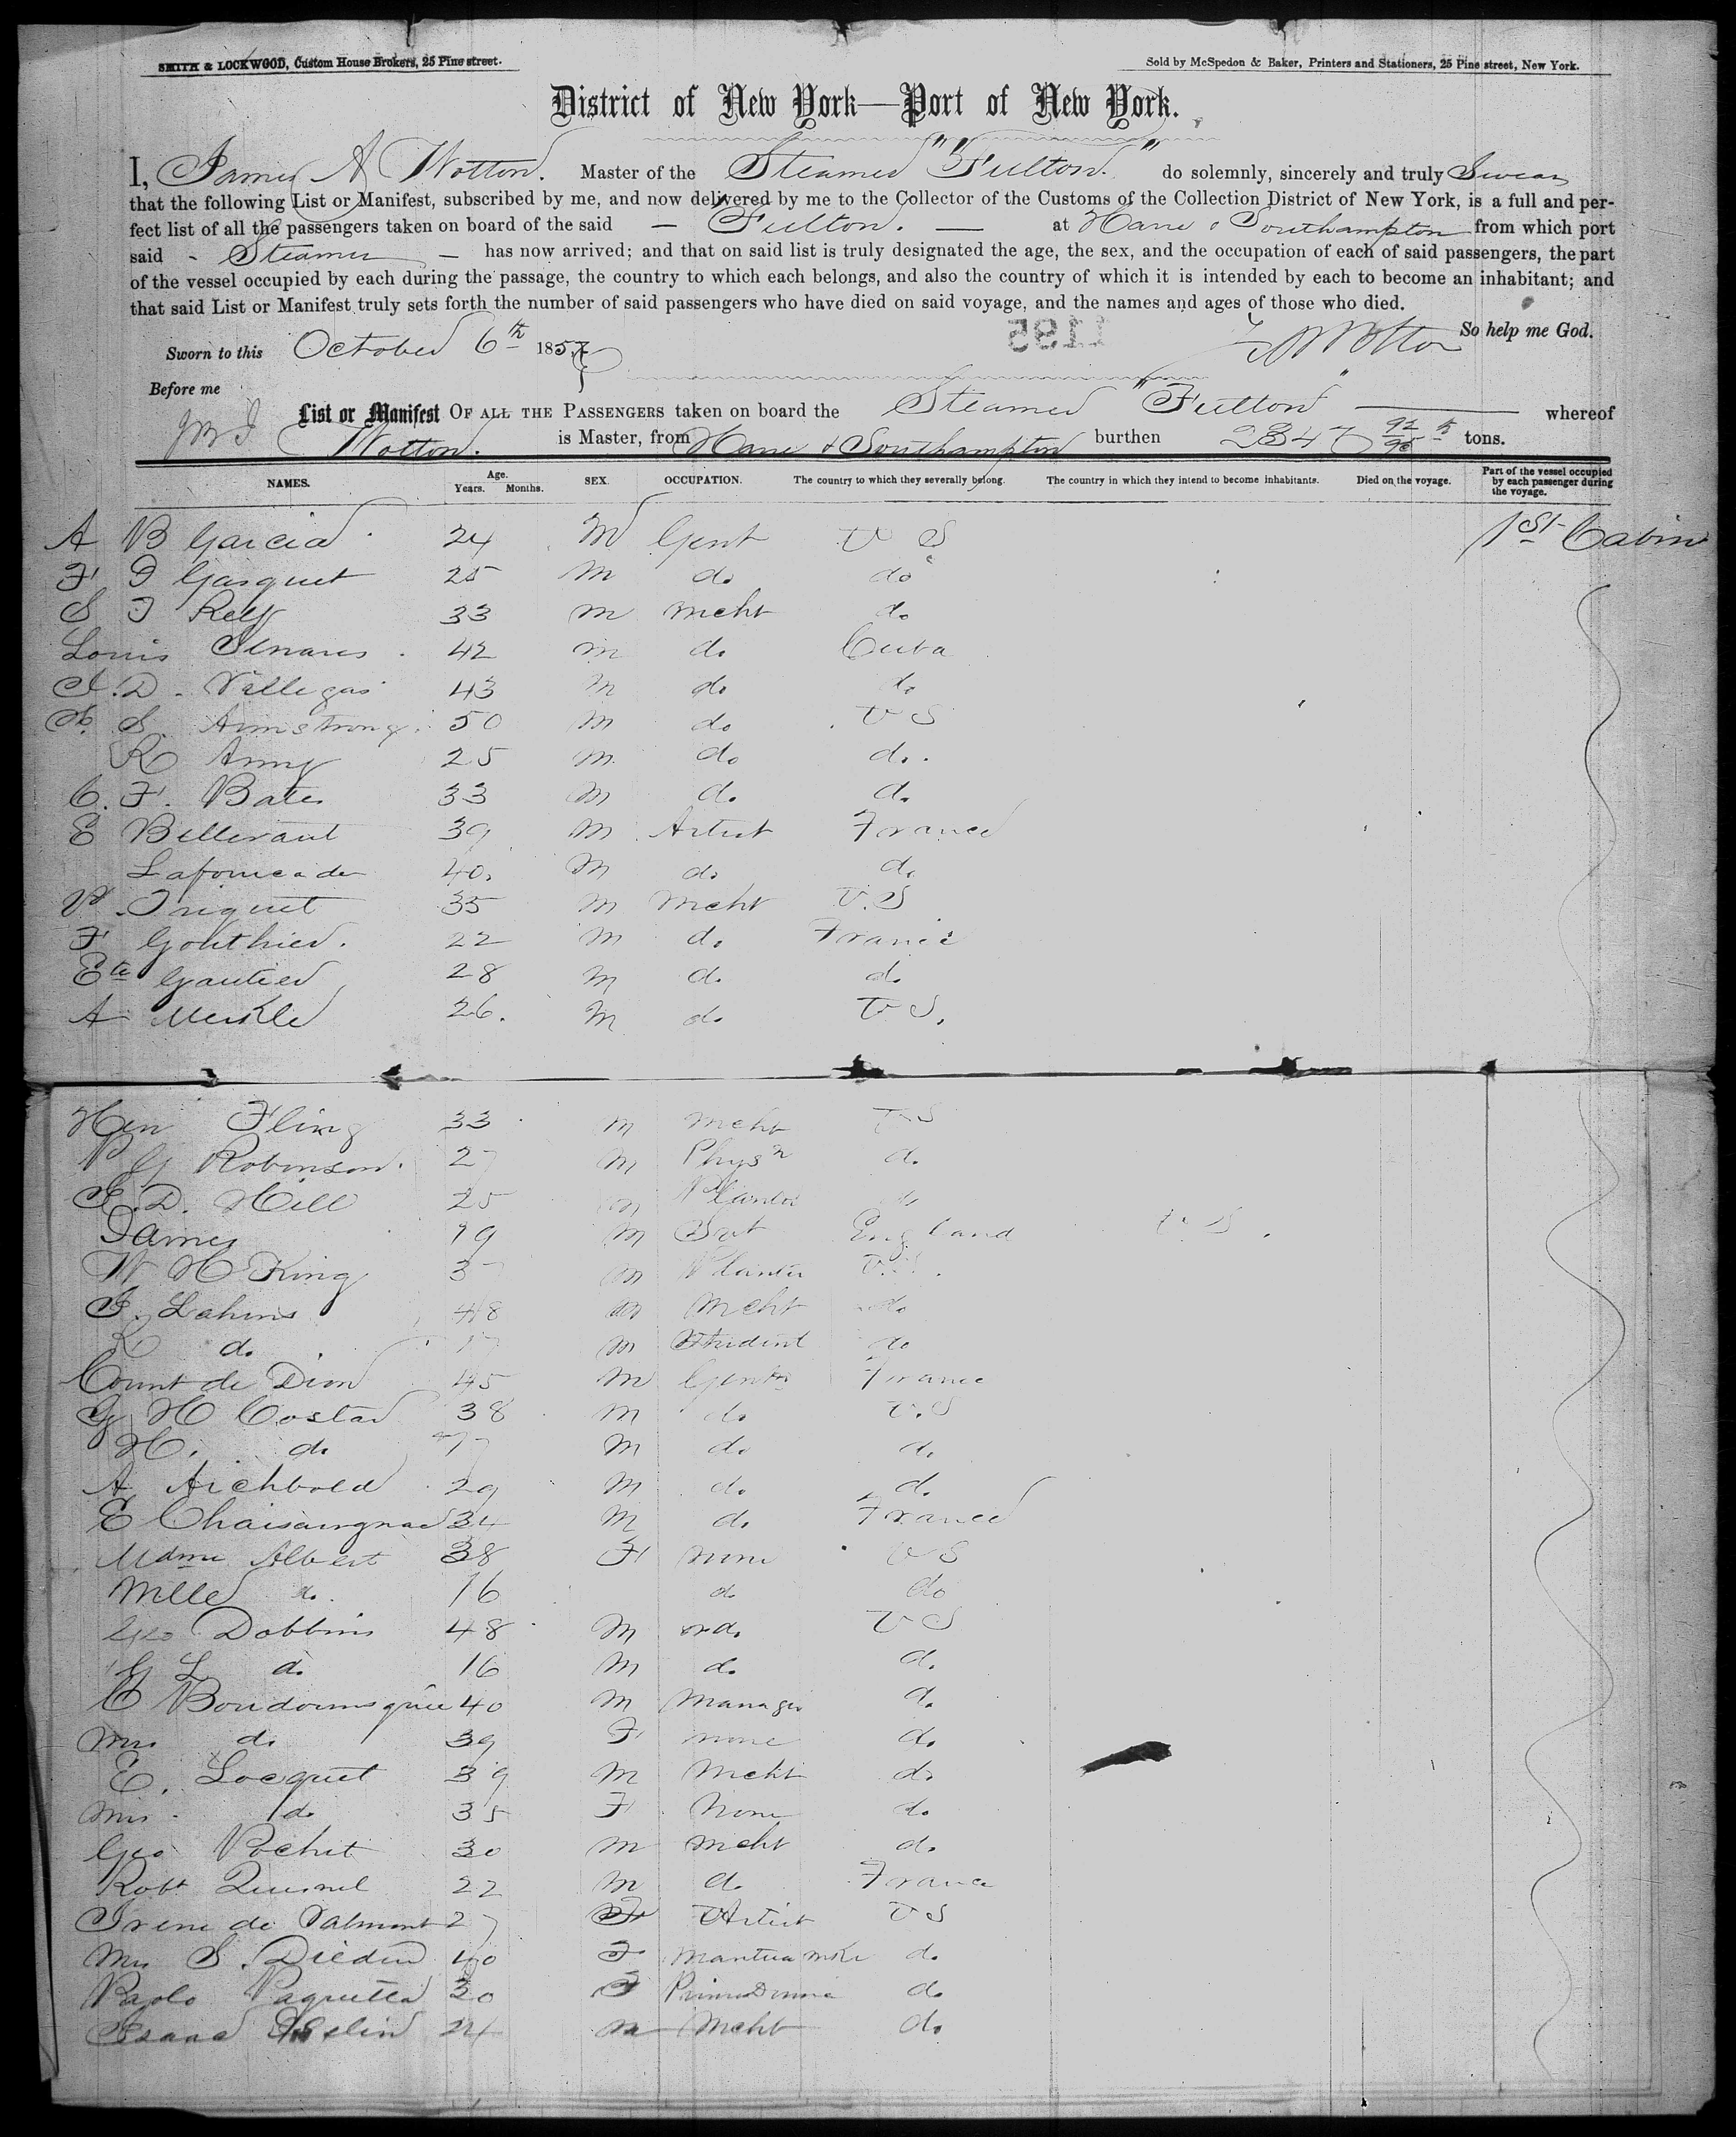 SMITH & LOCKWOOD, Custom House Brokers, 25 Pine street.
Sold by McSpedon & Baker, Printers and Stationers, 25 Pine street, New York.
District of New York—Port of New York.
I, James A Wotton. Master of the Steamer "Fulton" do solemnly, sincerely and truly Swear
that the following List or Manifest, subscribed by me, and now delivered by me to the Collector of the Customs of the Collection District of New York, is a full and per-
fect list of all the passengers taken on board of the said — Fulton. — at Havre & Southampton from which port
said - Steamer — has now arrived; and that on said list is truly designated the age, the sex, and the occupation of each of said passengers, the part
of the vessel occupied by each during the passage, the country to which each belongs, and also the country of which it is intended by each to become an inhabitant; and
that said List or Manifest truly sets forth the number of said passengers who have died on said voyage, and the names and ages of those who died.
So help me God.
1195
Sworn to this October 6th 1857
Before me
List or Manifest OF ALL THE PASSENGERS taken on board the Steamer "Fulton" whereof
Wotton. is Master, from Havre & Southampton burthen 2347 92/95 th tons.
NAMES. Age. Years. Months. SEX. OCCUPATION. The country to which they severally belong. The country in which they intend to become inhabitants. Died on the voyage. Part of the vessel occupied by each passenger during the voyage.
A B Garcia 24 M Gent U S 1st Cabin
F I Gasquet 25 M do do
S T Relf 33 M Mcht do
Louis 42 M do Cuba
J. D. Villegas 43 M do do
S. Armstrong 50 M do U S
R Amy 25 M do do
C. F. Bates 33 M do do
E Billerant 39 M Artist France
40 M do do
V. Triquet 35 M Mcht U.S
F Gouthier. 22 M do France
Ete Gautier 28 M do do
A Merkle 26. M do U S.
Hen Fling 33 M Mcht U S
P G Robinson. 27 M Physn do
J. D. Hill 25 M Planter do
James 19 M England U.S.
W H King 37 M Planter U.S.
J. Lahens 48 M Mcht do
R do 17 M Student do
Count de Dion 45 M Gentn France
G H Costar 38 M do U.S
H. do 17 M do do
A Aichbold 29 M do do
E Chaisaurgnac 34 M do France
Mdme Albert 38 F none U S
Mlle do 16 do do
Geo Dobbins 48 M do U S
G L do 16 M do do
C Boudousquie 40 M Manager do
Mrs do 39 F none do
E. Locquet 39 M Mcht do
Mrs do 35 F None do
Geo Pochet 30 M Mcht do
Robt Quesnel 22 M do France
Irene de Valmont 27 F Artist U S
Mrs S. Dieden 40 F Mantua mkr do
Paolo Paquetta 30 F Prima Donna do
Isaac Iselin 24 M Mcht do